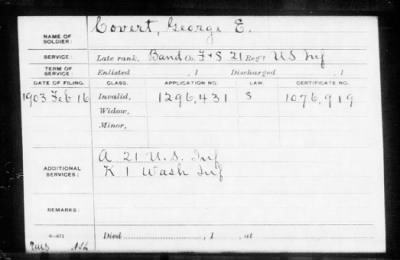 NAME OF SOLDIER: Covert, George E.
SERVICE: Late rank, Band Co. F+S 21 Reg't U.S. Inf
TERM OF SERVICE: Enlisted , 1 Discharged , 1
DATE OF FILING. CLASS. APPLICATION NO. LAW. CERTIFICATE NO.
1903 Feb 16 Invalid, 1296,431 1076,919
Widow,
Minor,
ADDITIONAL SERVICES: A 21 U.S. Inf
K 1 Wash Inf
REMARKS:
Died , 1 , at